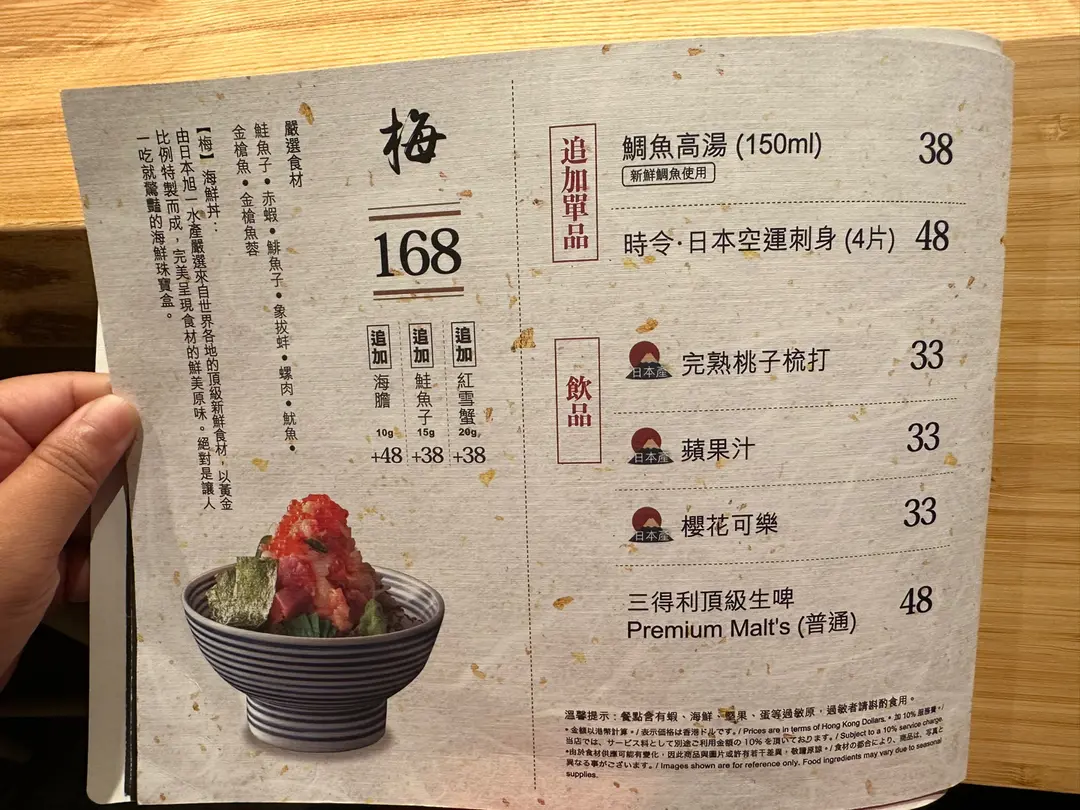 梅
168
追加 海膽 10g +48
追加 鮭魚子 15g +38
追加 紅雪蟹 20g +38
嚴選食材
鮭魚子•赤蝦•鯡魚子•象拔蚌•螺肉•魷魚•
金槍魚•金槍魚蓉
【梅】海鮮丼：
由日本旭一水產嚴選來自世界各地的頂級新鮮食材，以黃金
比例特製而成，完美呈現食材的鮮美原味。絕對是讓人
一吃就驚豔的海鮮珠寶盒。
追加單品
鯛魚高湯 (150ml) 38
新鮮鯛魚使用
時令·日本空運刺身 (4片) 48
飲品
日本產 完熟桃子梳打 33
日本產 蘋果汁 33
日本產 櫻花可樂 33
三得利頂級生啤 48
Premium Malt's (普通)
溫馨提示：餐點含有蝦、海鮮、堅果、蛋等過敏原，過敏者請斟酌食用。
•金額以港幣計算。/ 表示価格は香港ドルです。/ Prices are in terms of Hong Kong Dollars. • 加 10% 服務費。/
当店では、サービス料として別途ご利用金額の 10% を頂いております。/ Subject to a 10% service charge.
•由於食材供應可能有變化，因此商品與圖片或許有若干差異，敬請原諒。/ 食材の都合により、商品は、写真と
異なる事がございます。/ Images shown are for reference only. Food ingredients may vary due to seasonal
supplies.